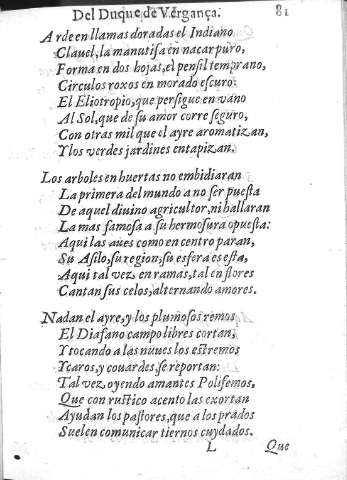 Del Duque de Vergança. 81
Arde en llamas doradas el Indiano
Clauel, la manutisa en nacar puro,
Forma en dos hojas, el pensil temprano,
Circulos roxos en morado escuro:
El Eliotropio, que persigue en vano
Al Sol, que de su amor corre seguro,
Con otras mil que el ayre aromatizan,
Y los verdes jardines entapizan.
Los arboles en huertas no embidiaran
La primera del mundo a no ser puesta
De aquel diuino agricultor, ni hallaran
La mas famosa a su hermosura opuesta:
Aqui las aues como en centro paran,
Su Asilo, su region, su esfera es esta,
Aqui tal vez en ramas, tal en flores
Cantan sus celos, alternando amores.
Nadan el ayre, y los plumosos remos
El Diafano campo libres cortan,
Y tocando a las nuues los estremos
Ycaros, y couardes, se reportan:
Tal vez oyendo amantes Polifemos,
Que con rustico acento las exortan
Ayudan los pastores, que a los prados
Suelen comunicar tiernos cuydados.
L Que